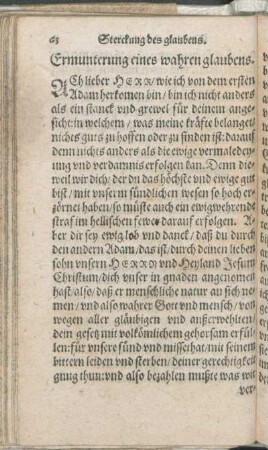 68 Sterckung des glaubens.
Ermunterung eines wahren glaubens.
ACh lieber HERR/ wie ich von dem ersten
Adam herkomen bin/ bin ich nicht anders
als ein stanck vnd grewel für deinem ange-
sicht: in welchem/ was meine kräfte belanget
nichts guts zu hoffen oder zu finden ist: darauf
denn nichts anders als die ewige vermaledey-
ung vnd verdamnis erfolgen kan. Denn die-
weil wir dich/ der du das höchste vnd ewige gut
bist/ mit vnserm sündlichen wesen so hoch er-
zörnet haben/ so müste auch ein ewigwehrende
straf im hellischen fewer darauf erfolgen. A-
ber dir sey ewig lob vnd danck/ daß du durch
den andern Adam/ das ist/ durch deinen lieben
sohn vnsern HERRN vnd Heyland Jesum
Christum/ dich vnser in gnaden angenomen
hast/ also/ daß er menschliche natur an sich ne-
men/ vnd also wahrer Gott vnd mensch/ von
wegen aller gläubigen vnd außerwehlten/
dein gesetz mit volkömlichem gehorsam erfül-
len: für vnsere sünd vnd missethat/ mit seinem
bittern leiden vnd sterben/ deiner gerechtigkeit
gnug thun: vnd also bezahlen müste was wir
ver-